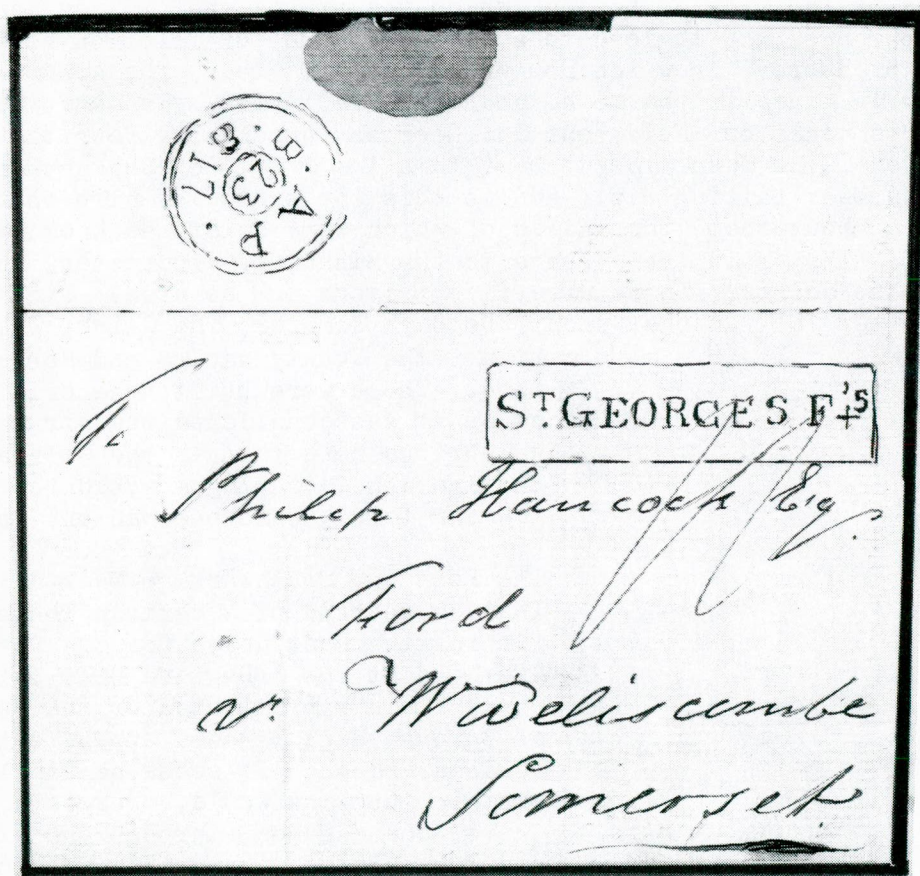 B·AP·817
23
To
ST GEORGES F
Philip Hancock Esq.
Ford
nr. Wiveliscombe
Somerset